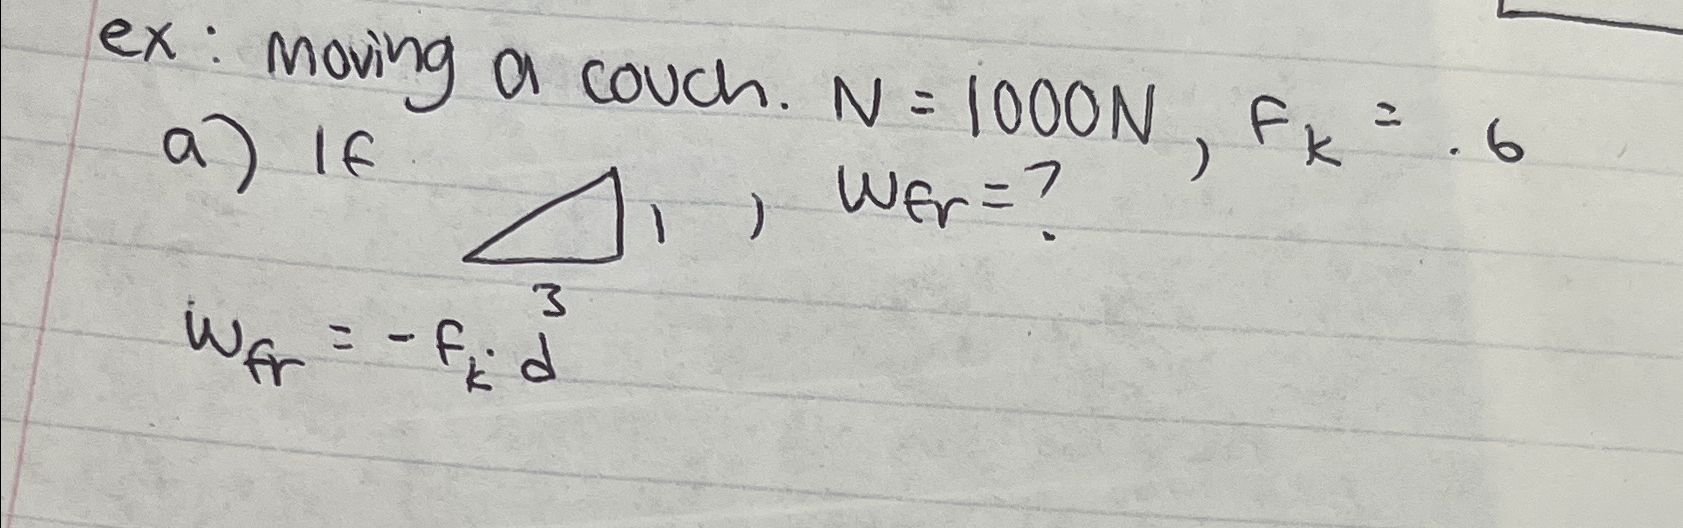 ex: moving a couch. N = 1000N, Fk = .6
a) If 1, Wfr = ?
3
Wfr = - Fk · d